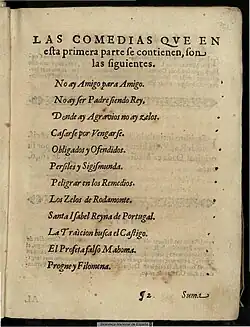 LAS COMEDIAS QVE EN
esta primera parte se contienen, son
las siguientes.
No ay Amigo para Amigo.
No ay ser Padre siendo Rey.
Donde ay Agravios no ay zelos.
Casarse por Vengarse.
Obligados y Ofendidos.
Persiles y Sigismunda.
Peligrar en los Remedios.
Los Zelos de Rodamonte.
Santa Isabel Reyna de Portugal.
La Traicion busca el Castigo.
El Profeta falso Mahoma.
Progne y Filomena.
¶2. Suma